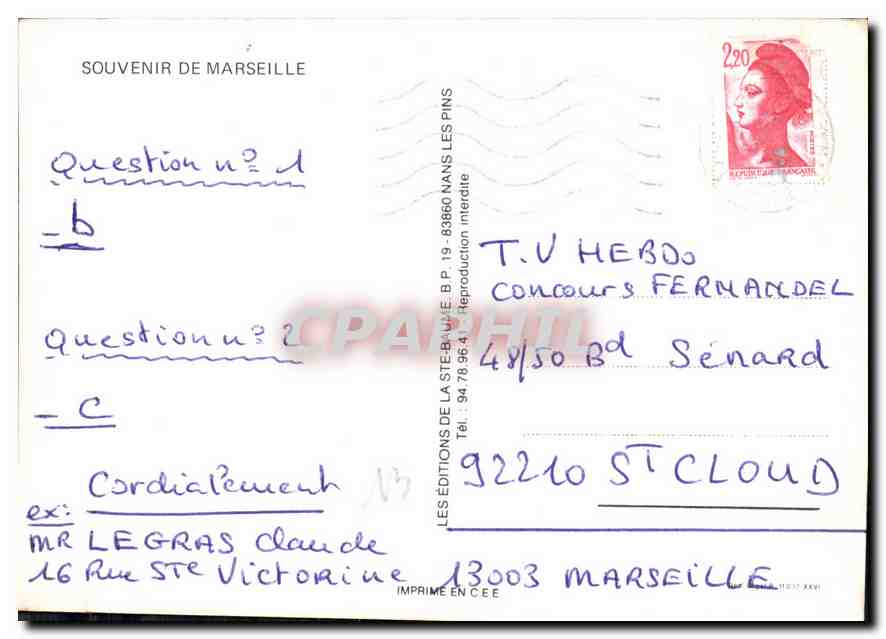 SOUVENIR DE MARSEILLE
Question nº 1
- b
Question nº 2
- c
Cordialement
ex:
MR LEGRAS Claude
16 Rue STe Victorine 13003 MARSEILLE
IMPRIMÉ EN C.E.E
LES ÉDITIONS DE LA STE-BAUME. B.P. 19 - 83860 NANS LES PINS
Tél. : 94.78.96.41 - Reproduction interdite
2,20
REPUBLIQUE FRANÇAISE
T.V HEBDO
Concours FERNANDEL
48/50 Bd Sénard
92210 ST CLOUD
13
CPARPHIL